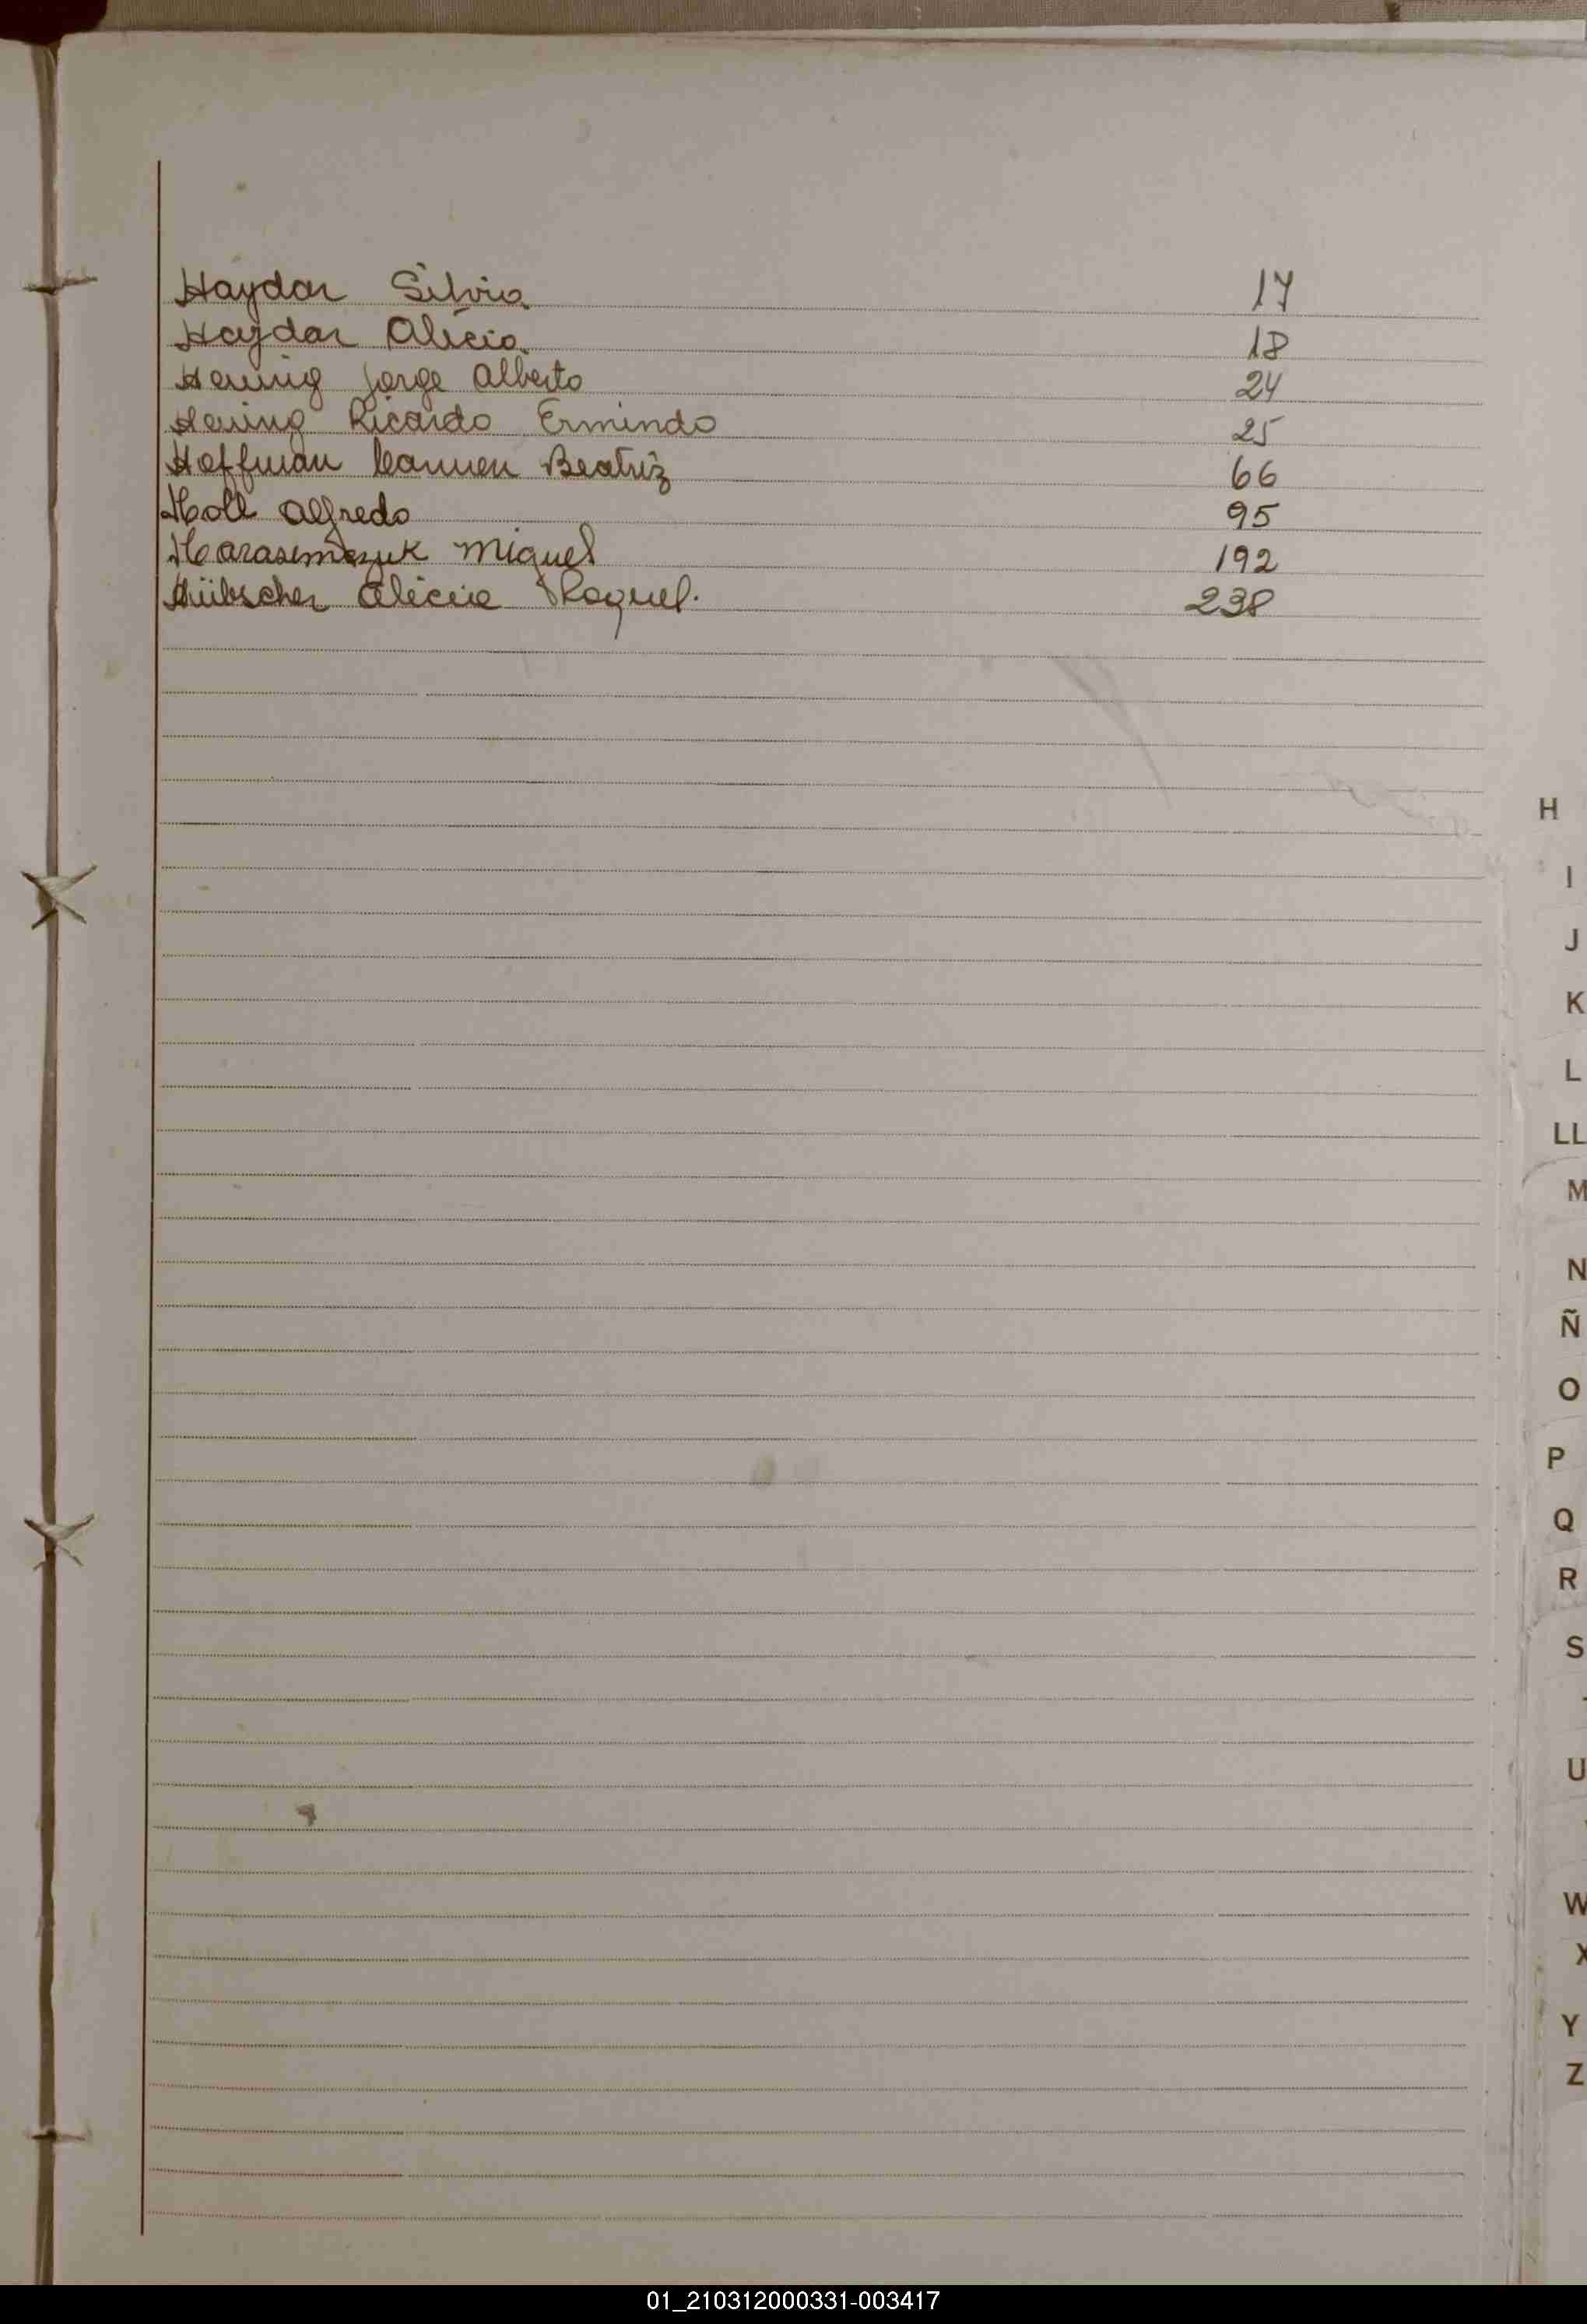 Haydar Silvia 17
Haydar Alicia 18
Hening Jorge Alberto 24
Hening Ricardo Ermindo 25
Hoffman Carmen Beatriz 66
Holl Alfredo 95
Miguel 192
Hübscher Alicia Raquel. 238
H
I
J
K
L
LL
M
N
Ñ
O
P
Q
R
S
U
W
X
Y
Z
01_210312000331-003417